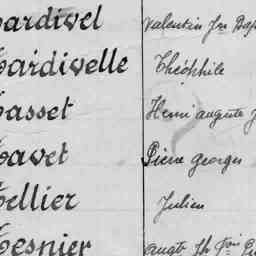 Tardivel Valentin Jn Bap
Tardivelle Théophile
Tasset Henri auguste J
Tavet Pierre georges
Tellier Julien
Tesnier augte Jh